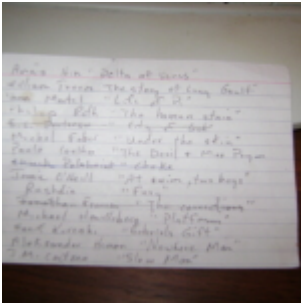 Anais Nin "Delta of Venus"
William Trevor The Story of Lucy Gault"
Martel "Life of Pi"
Philip Roth "The human stain"
Michel Faber "Under the skin"
Paulo Coelho "The Devil + Miss Prym
Chuck Palahniuk - Choke
Jamie O'Neill "At swim, two boys"
Rushdie "Fury"
Jonathan Franzen "The corrections"
Michel Houellebecq "Platform"
Hanif Kureishi "Gabriel's Gift"
Aleksandar Hemon "Nowhere Man"
J.M. Coetzee "Slow Man"